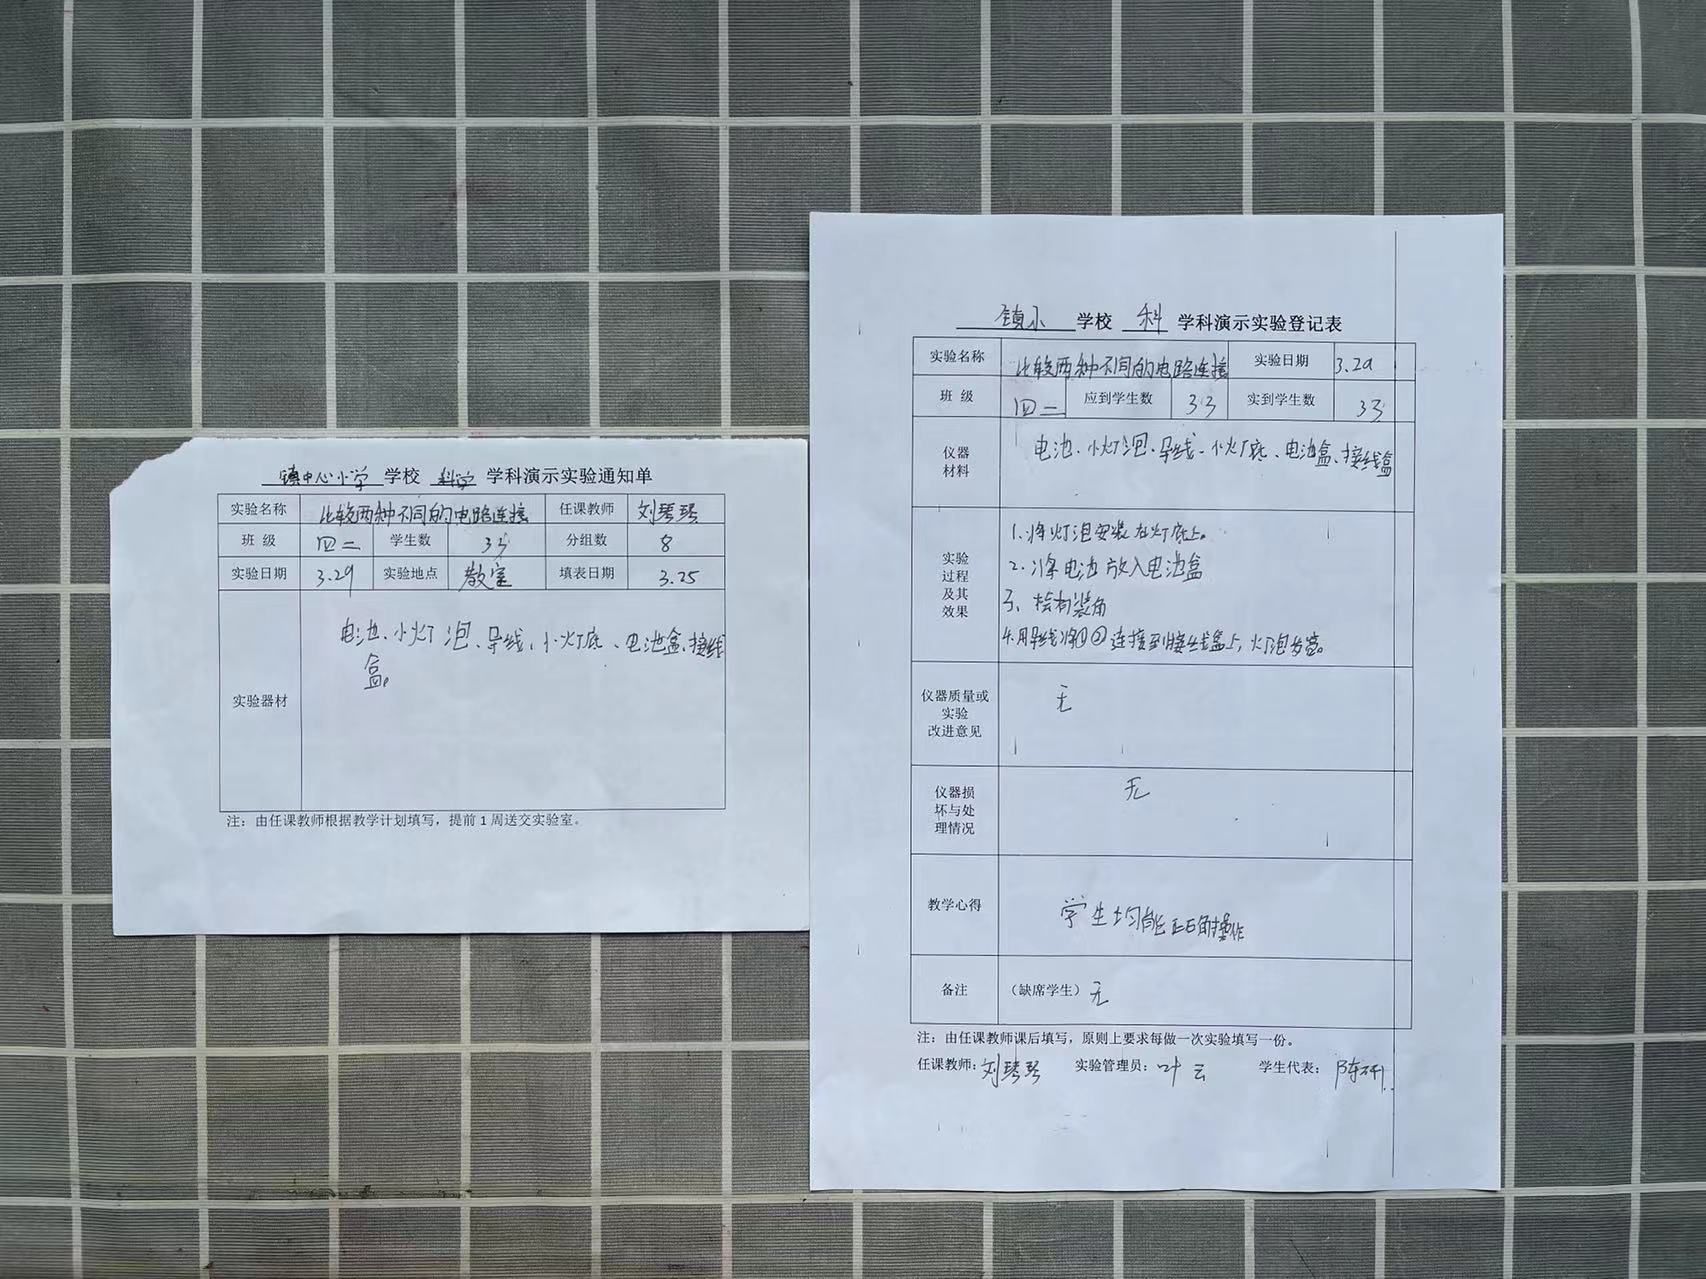 镇中心小学 学校 科学 学科演示实验通知单
实验名称 比较两种不同的电路连接 任课教师 刘琴琴
班 级 四二 学生数 33 分组数 8
实验日期 3.29 实验地点 教室 填表日期 3.25
实验器材 电池、小灯泡、导线、小灯底、电池盒、接线
盒。
注：由任课教师根据教学计划填写，提前 1 周送交实验室。
镇小 学校 科 学科演示实验登记表
实验名称 比较两种不同的电路连接 实验日期 3.29
班 级 四二 应到学生数 33 实到学生数 33
仪器
材料
电池、小灯泡、导线、小灯底、电池盒、接线盒
实验
过程
及其
效果
1、将灯泡安装在灯底上。
2、将电池放入电池盒
3、
4、用导线将①②连接到接线盒上，灯泡发亮。
仪器质量或
实验
改进意见
无
仪器损
坏与处
理情况
无
教学心得 学生均能正确操作
备注 （缺席学生）无
注：由任课教师课后填写，原则上要求每做一次实验填写一份。
任课教师：刘琴琴 实验管理员：叶云 学生代表：陈